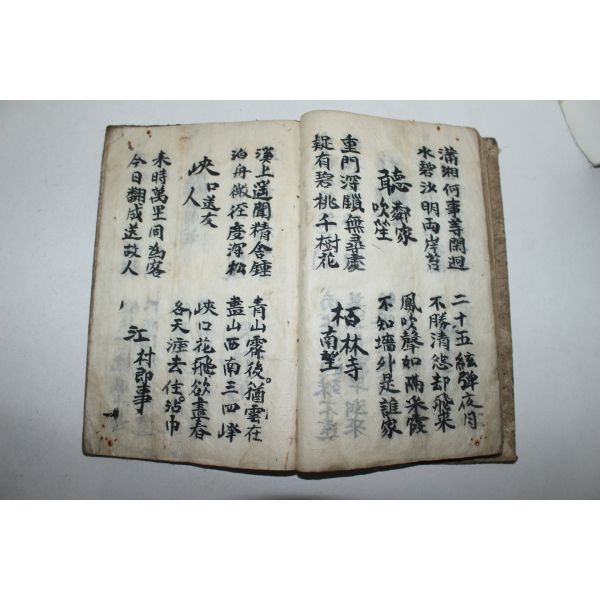 瀟湘何事等閑迴
水碧沙明兩岸苔
二十五絃彈夜月
不勝清怨却飛来
聽鄰家
吹笙
鳳吹聲如隔米霞
不知墻外是誰家
重門深鎖無尋處
疑有碧桃千樹花
栢林寺
南望
溪上遥聞精舍鍾
泊舟微徑度深松
青山霽後猶雲在
畫山西南三四峰
峽口送友
人
峽口花飛欲盡春
各天涯去住沾巾
来時萬里同為客
今日翻成送故人
江村即事